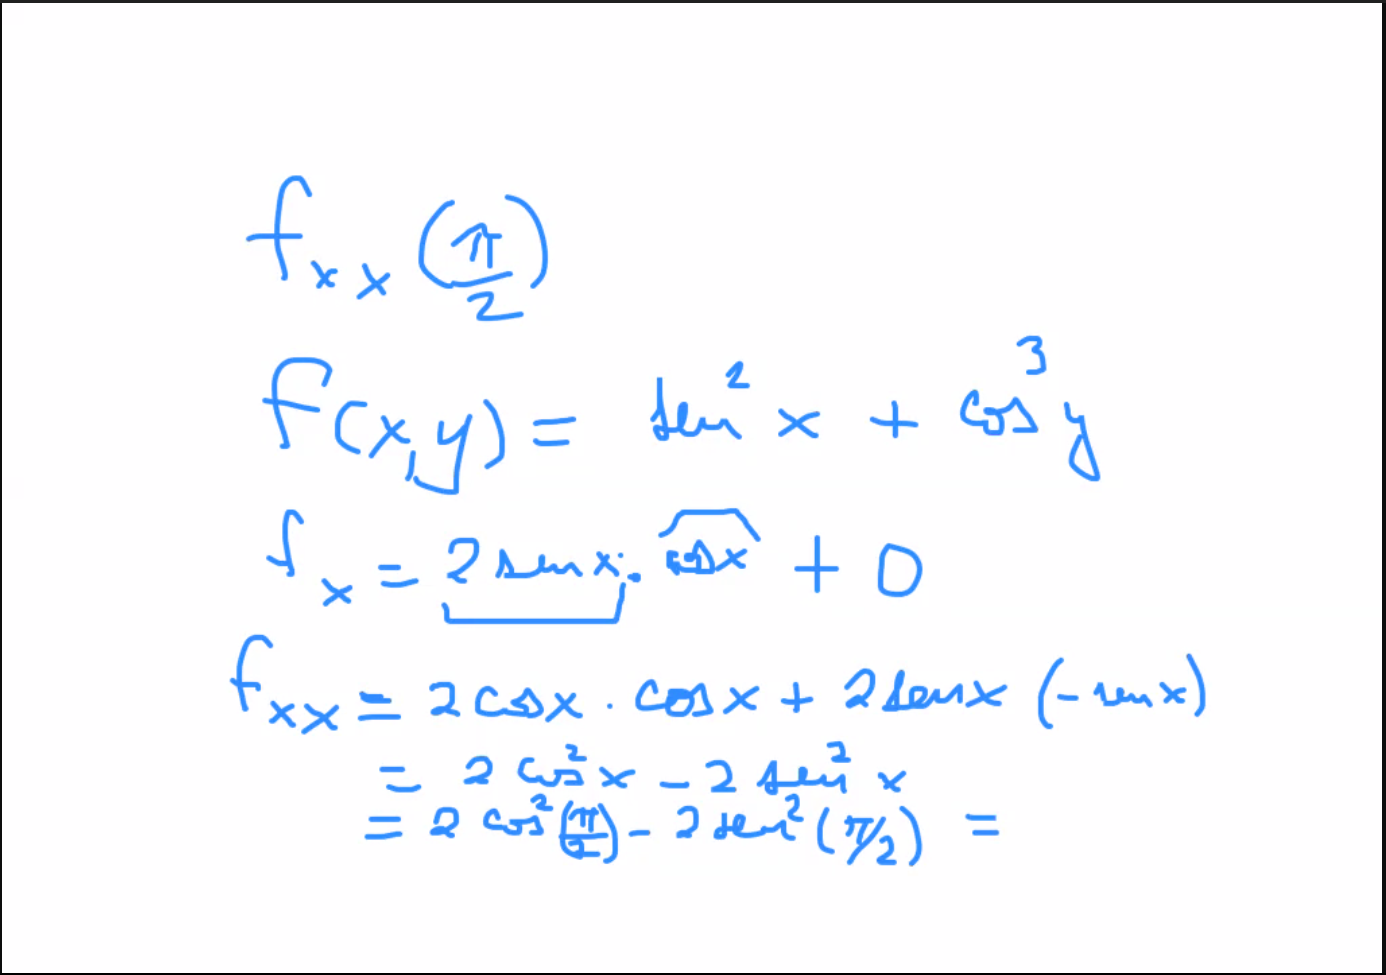 f_xx (π/2)
f(x,y) = sen² x + cos³ y
f_x = 2 sen x . cos x + 0
f_xx = 2 cos x . cos x + 2 sen x (- sen x)
= 2 cos² x - 2 sen² x
= 2 cos² (π/2) - 2 sen² (π/2) =